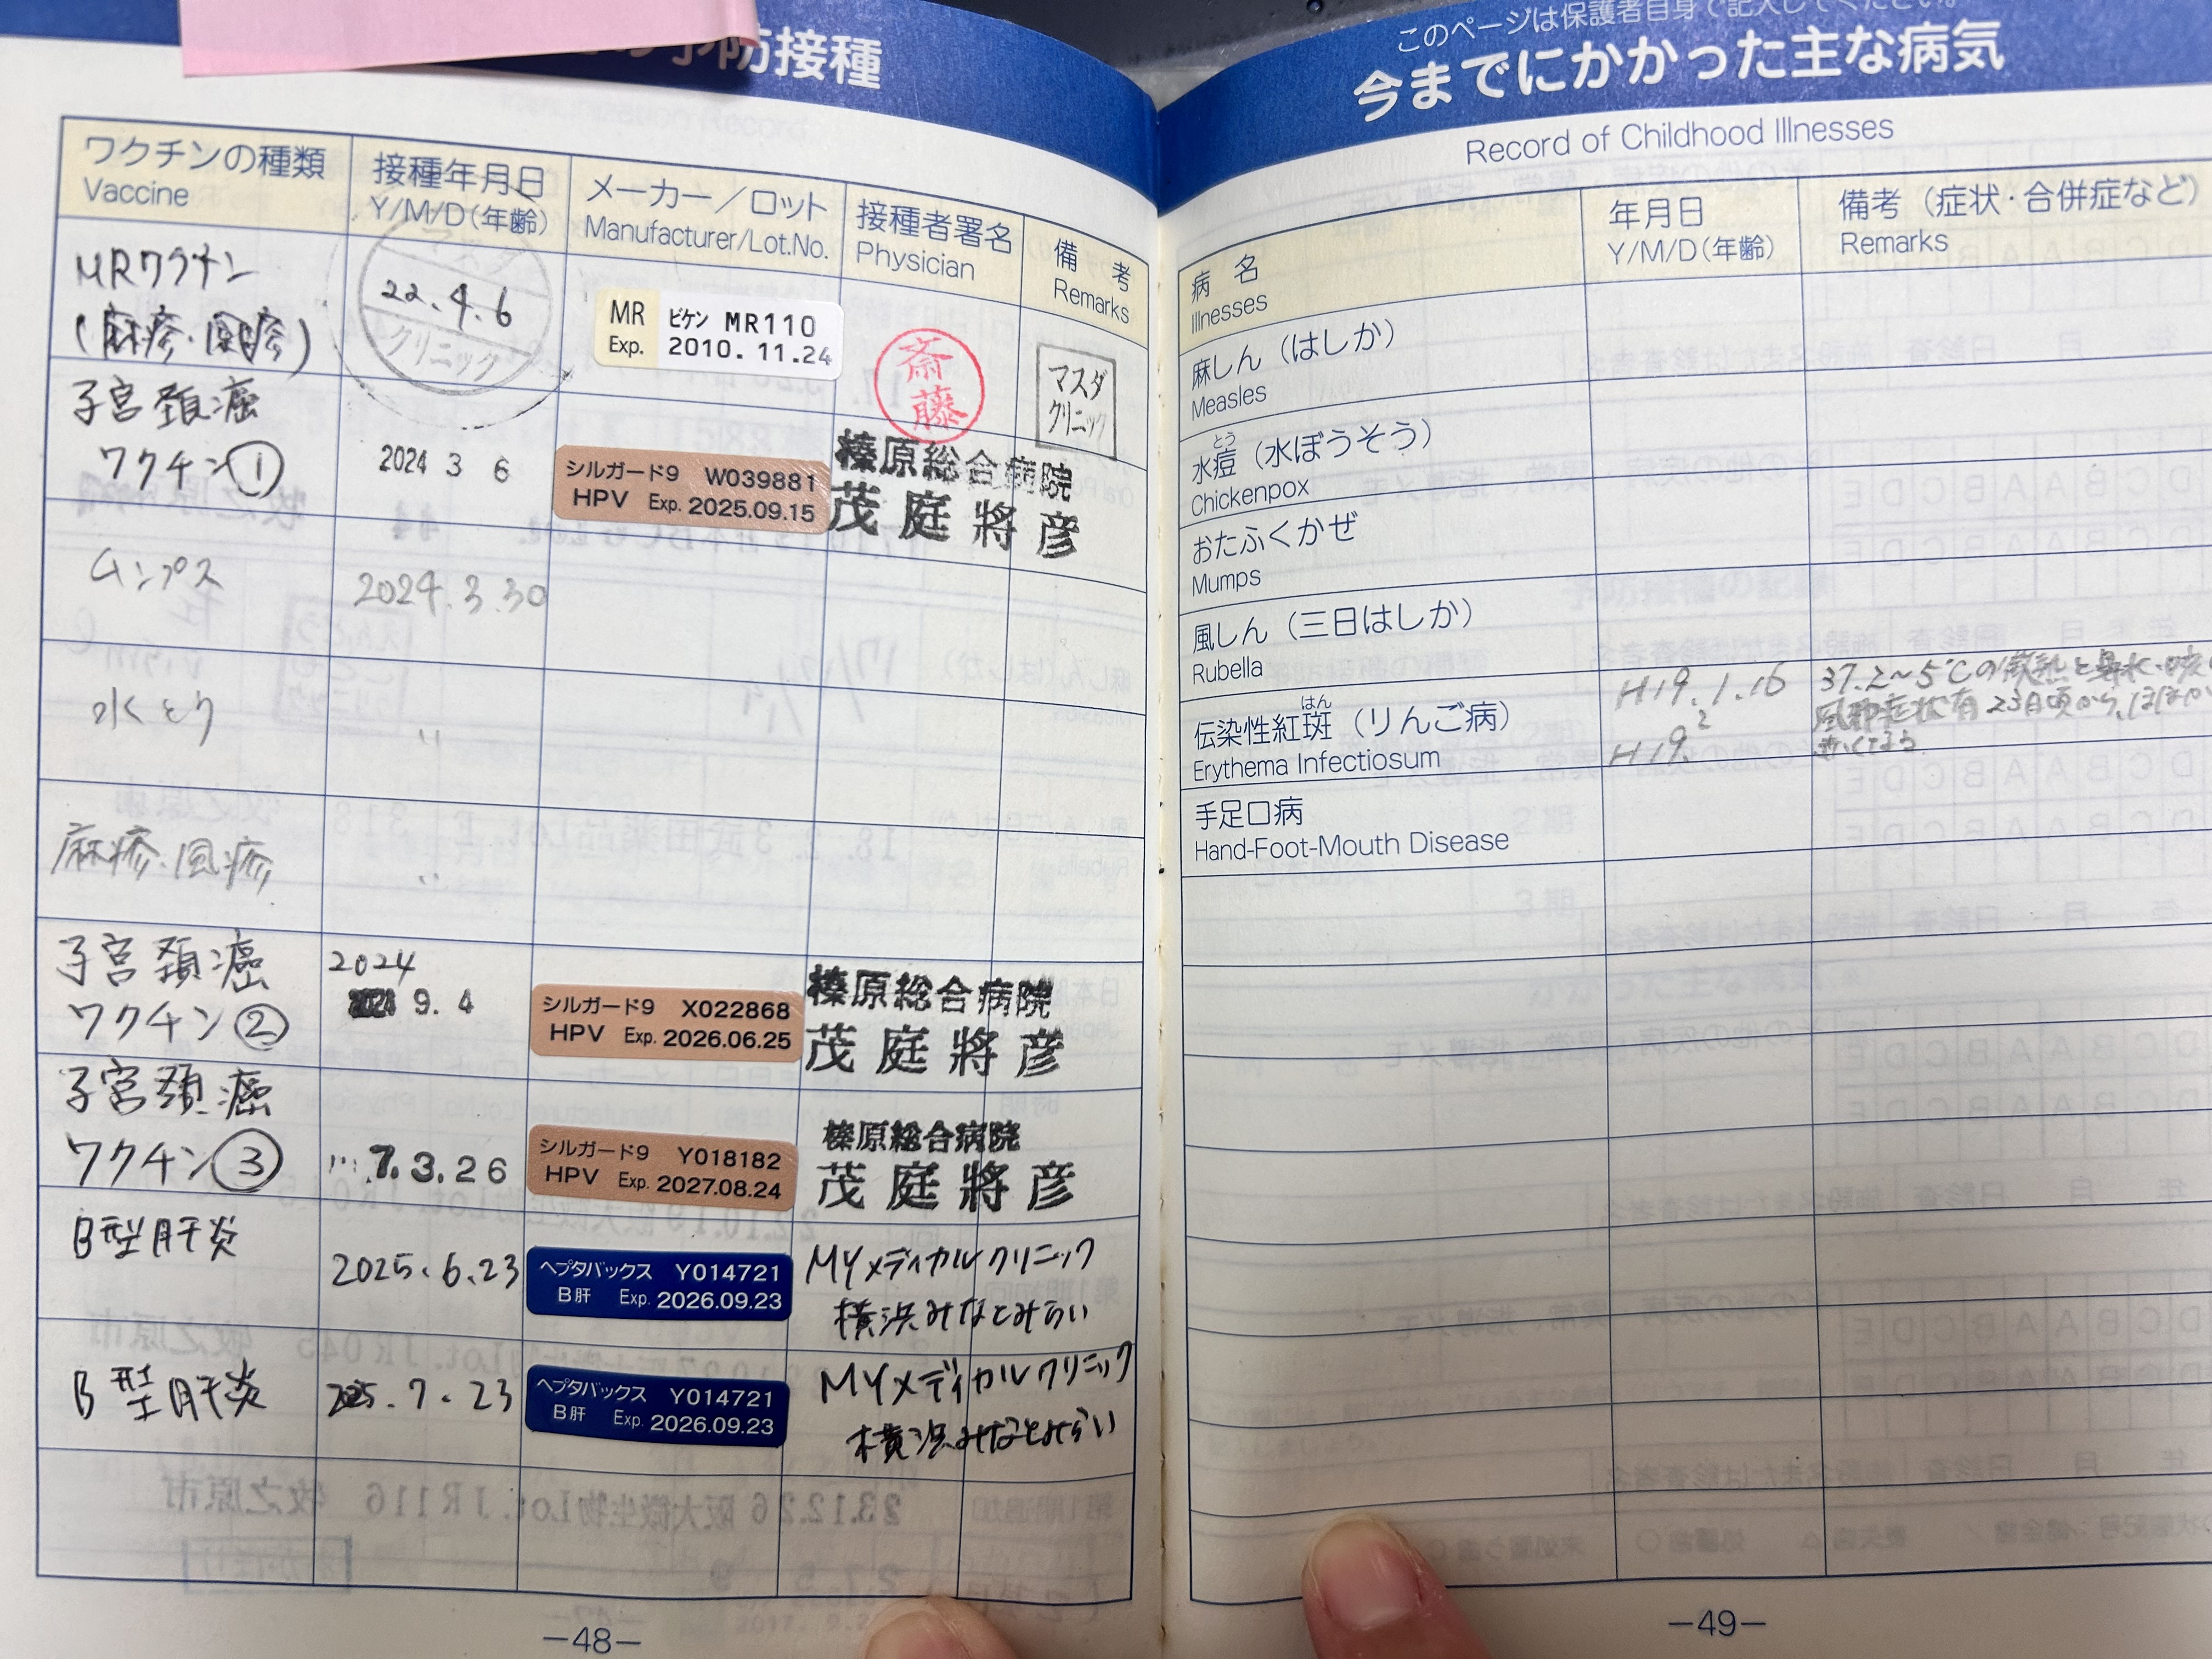 予防接種
ワクチンの種類
Vaccine
接種年月日
Y/M/D(年齢)
メーカー／ロット
Manufacturer/Lot.No.
接種者署名
Physician
備考
Remarks
MRワクチン
(麻疹・風疹)
マスダ
22.4.6
クリニック
MR ビケン MR110
Exp. 2010.11.24
斎藤
マスダ
クリニック
子宮頚癌
ワクチン①
2024 3 6
シルガード9 W039881
HPV Exp. 2025.09.15
榛原総合病院
茂庭將彦
ムンプス
2024.3.30
水とう
〃
麻疹・風疹
〃
子宮頚癌
ワクチン②
2024
9.4
シルガード9 X022868
HPV Exp. 2026.06.25
榛原総合病院
茂庭將彦
子宮頚癌
ワクチン③
7.3.26
シルガード9 Y018182
HPV Exp. 2027.08.24
榛原総合病院
茂庭將彦
B型肝炎
2025.6.23
ヘプタバックス Y014721
B肝 Exp. 2026.09.23
MYメディカルクリニック
横浜みなとみらい
B型肝炎
2025.7.23
ヘプタバックス Y014721
B肝 Exp. 2026.09.23
MYメディカルクリニック
横浜みなとみらい
—48—
このページは保護者自身で記入してください。
今までにかかった主な病気
Record of Childhood Illnesses
病名
Illnesses
年月日
Y/M/D(年齢)
備考（症状・合併症など）
Remarks
麻しん（はしか）
Measles
水痘（水ぼうそう）
とう
Chickenpox
おたふくかぜ
Mumps
風しん（三日はしか）
Rubella
伝染性紅斑（りんご病）
はん
Erythema Infectiosum
H19.1.16
H19.2
37.2〜5℃の微熱と鼻水・咳
風邪症状有 23日頃から、ほほが
赤くなる
手足口病
Hand-Foot-Mouth Disease
—49—